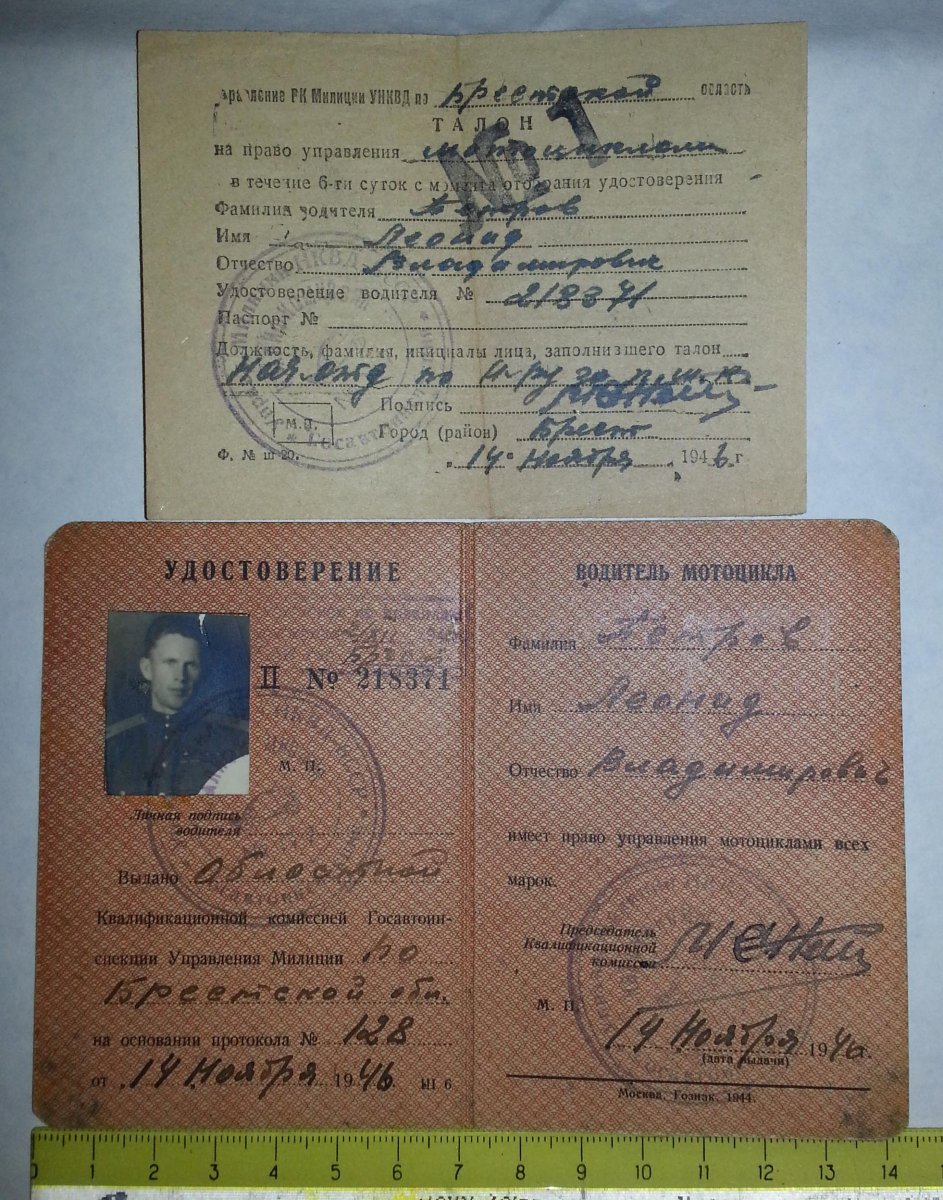 правление РК Милиции УНКВД по Брестской область
ТАЛОН
№ 1
на право управления мотоциклом
в течение 6-ти суток с момента отобрания удостоверения
Фамилия водителя Петров
Имя Леонид
Отчество Владимирович
Удостоверение водителя № 218371
Паспорт №
Должность, фамилия, инициалы лица, заполнившего талон
Нач. отд по
Подпись
М.П.
Город (район) Брест
Ф. № Ш-20. „14" Ноября 1946 г.
УДОСТОВЕРЕНИЕ
II № 218371
М. П.
Личная подпись
водителя
Выдано Областной
Квалификационной комиссией Госавтоин-
спекции Управления Милиции по
Брестской обл.
на основании протокола № 128
от 14 Ноября 1946 Ш 6
ВОДИТЕЛЬ МОТОЦИКЛА
Фамилия Петров
Имя Леонид
Отчество Владимирович
имеет право управления мотоциклами всех
марок.
Председатель
Квалификационной
комиссии
М. П.
14 Ноября 1946.
(дата выдачи)
Москва. Гознак. 1944.
0 1 2 3 4 5 6 7 8 9 10 11 12 13 14